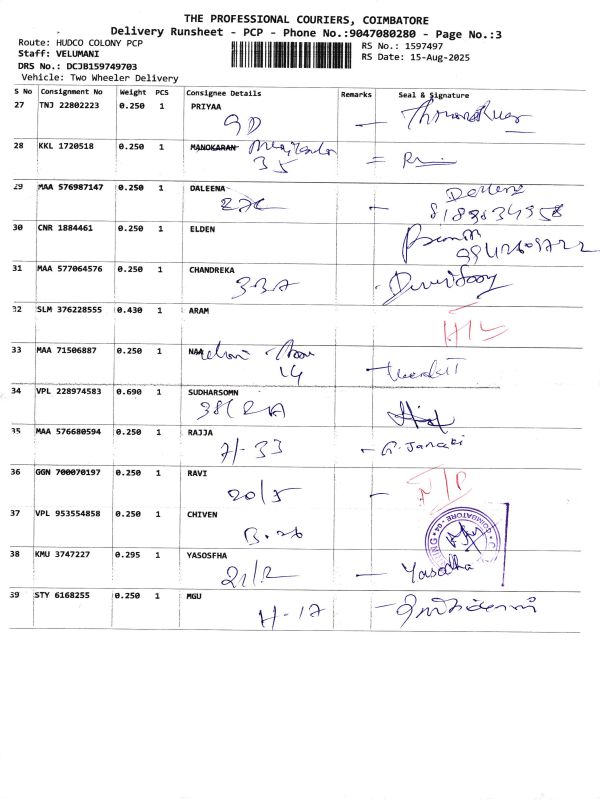 THE PROFESSIONAL COURIERS, COIMBATORE
Delivery Runsheet - PCP - Phone No.:9047080280 - Page No.:3
Route: HUDCO COLONY PCP
RS No.: 1597497
Staff: VELUMANI
RS Date: 15-Aug-2025
DRS No.: DCJB159749703
Vehicle: Two Wheeler Delivery
S No Consignment No Weight PCS Consignee Details Remarks Seal & Signature
27 TNJ 22802223 0.250 1 PRIYAA
9D
28 KKL 1720518 0.250 1 MANOKARAN
35
29 MAA 576987147 0.250 1 DALEENA
8189834958
30 CNR 1884461 0.250 1 ELDEN
31 MAA 577064576 0.250 1 CHANDREKA
33A
32 SLM 376228555 0.430 1 ARAM
33 MAA 71506887 0.250 1
14
34 VPL 228974583 0.690 1 SUDHARSOMN
35 MAA 576680594 0.250 1 RAJJA
7/-33 G. Janaki
36 GGN 700070197 0.250 1 RAVI
20/5
37 VPL 953554858 0.250 1 CHIVEN
B.26
COIMBATORE
38 KMU 3747227 0.295 1 YASOSFHA
21/2 Yasodha
39 STY 6168255 0.250 1 MGU
H-17